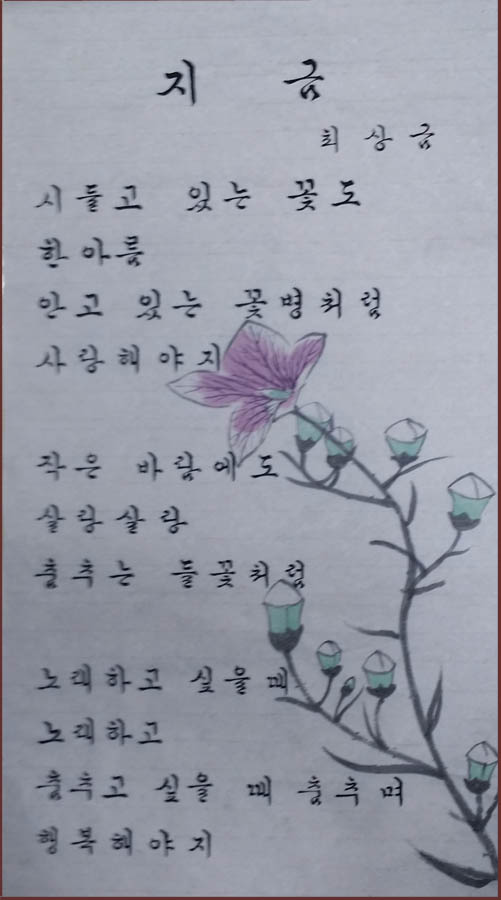 지 금
최상금
시들고 있는 꽃도
한아름
안고 있는 꽃병처럼
사랑해야지
작은 바람에도
살랑살랑
춤추는 들꽃처럼
노래하고 싶을때
노래하고
춤추고 싶을 때 춤추며
행복해야지